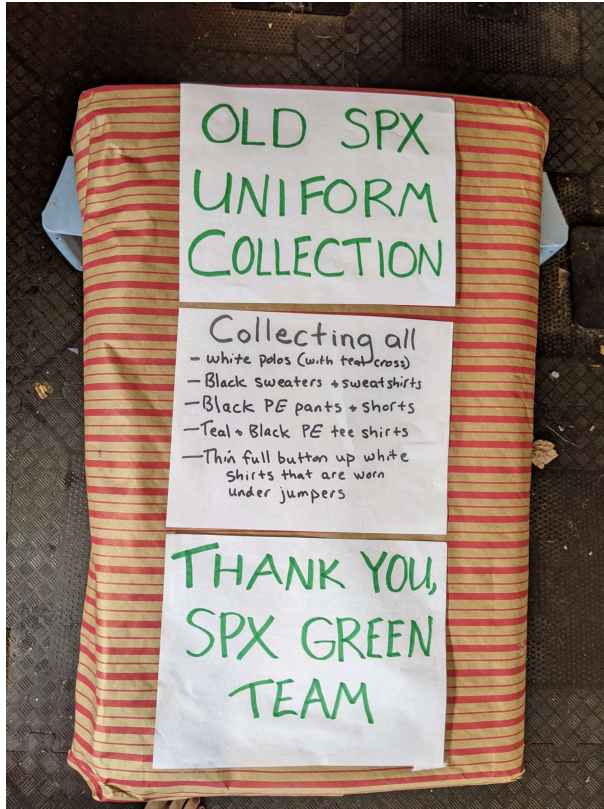 OLD SPX
UNIFORM
COLLECTION
Collecting all
- white polos (with teal cross)
- Black sweaters + sweatshirts
- Black PE pants + shorts
- Teal + Black PE tee shirts
- Thin full button up white
shirts that are worn
under jumpers
THANK YOU,
SPX GREEN
TEAM